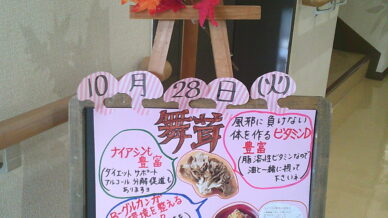 10月28日(火)
舞茸
風邪に負けない
体を作るビタミンD
豊富
脂溶性ビタミンなので
油と一緒に摂って
下さいね
ナイアシンも
豊富
ダイエットサポート
アルコール分解促進も
あります
β-グルカンが
環境を整える